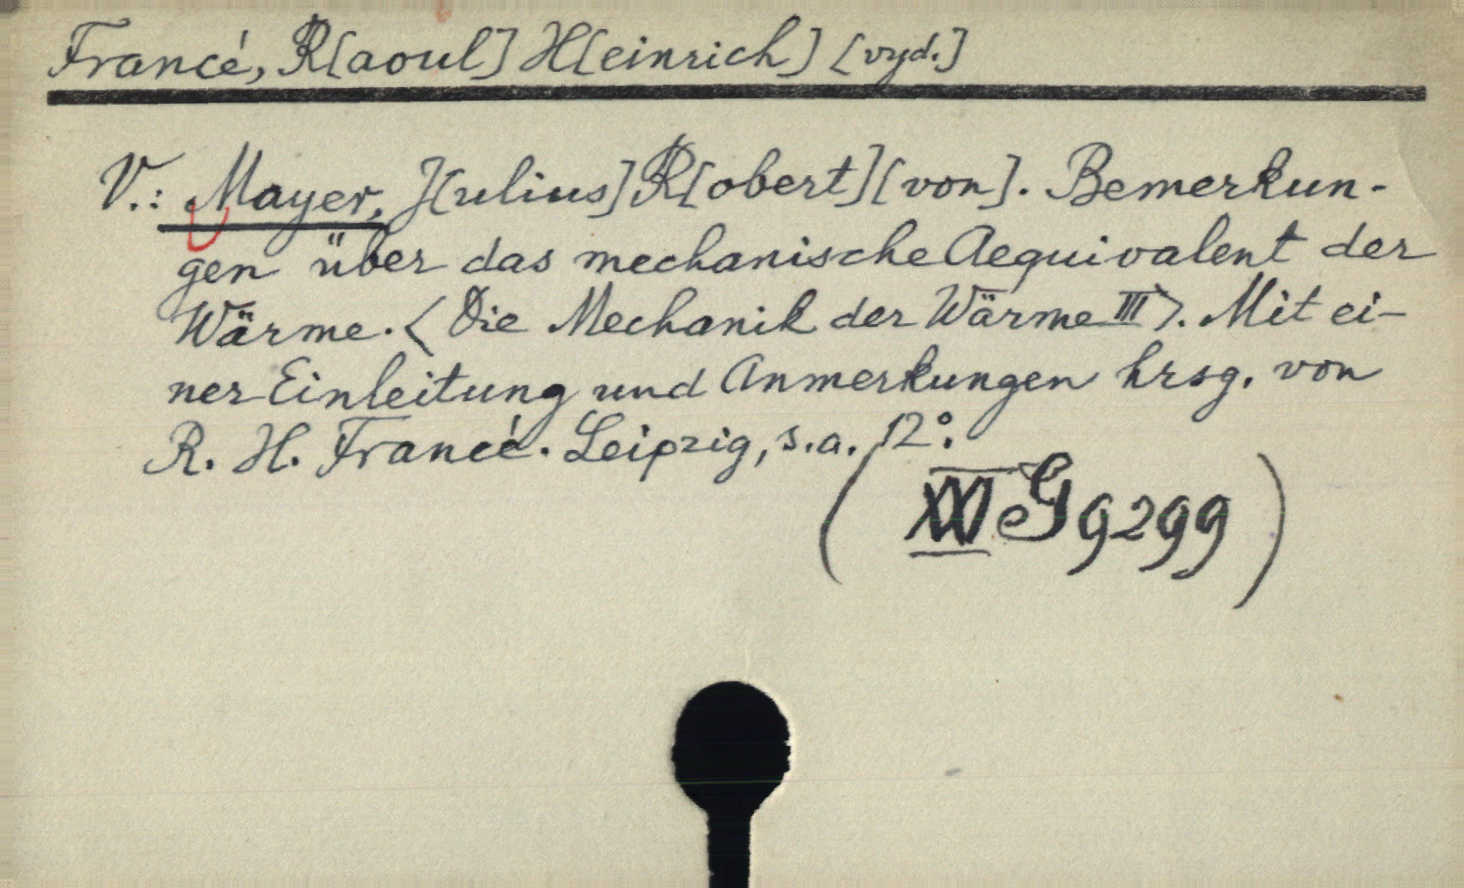 Francé, R[aoul] H[einrich] [vyd.]
V.: Mayer, J[ulius] R[obert] [von]. Bemerkun-
gen über das mechanische Aequivalent der
Wärme. <Die Mechanik der Wärme III>. Mit ei-
ner Einleitung und Anmerkungen hrsg. von
R. H. Francé. Leipzig, s.a. 12°.
( G 9299 )